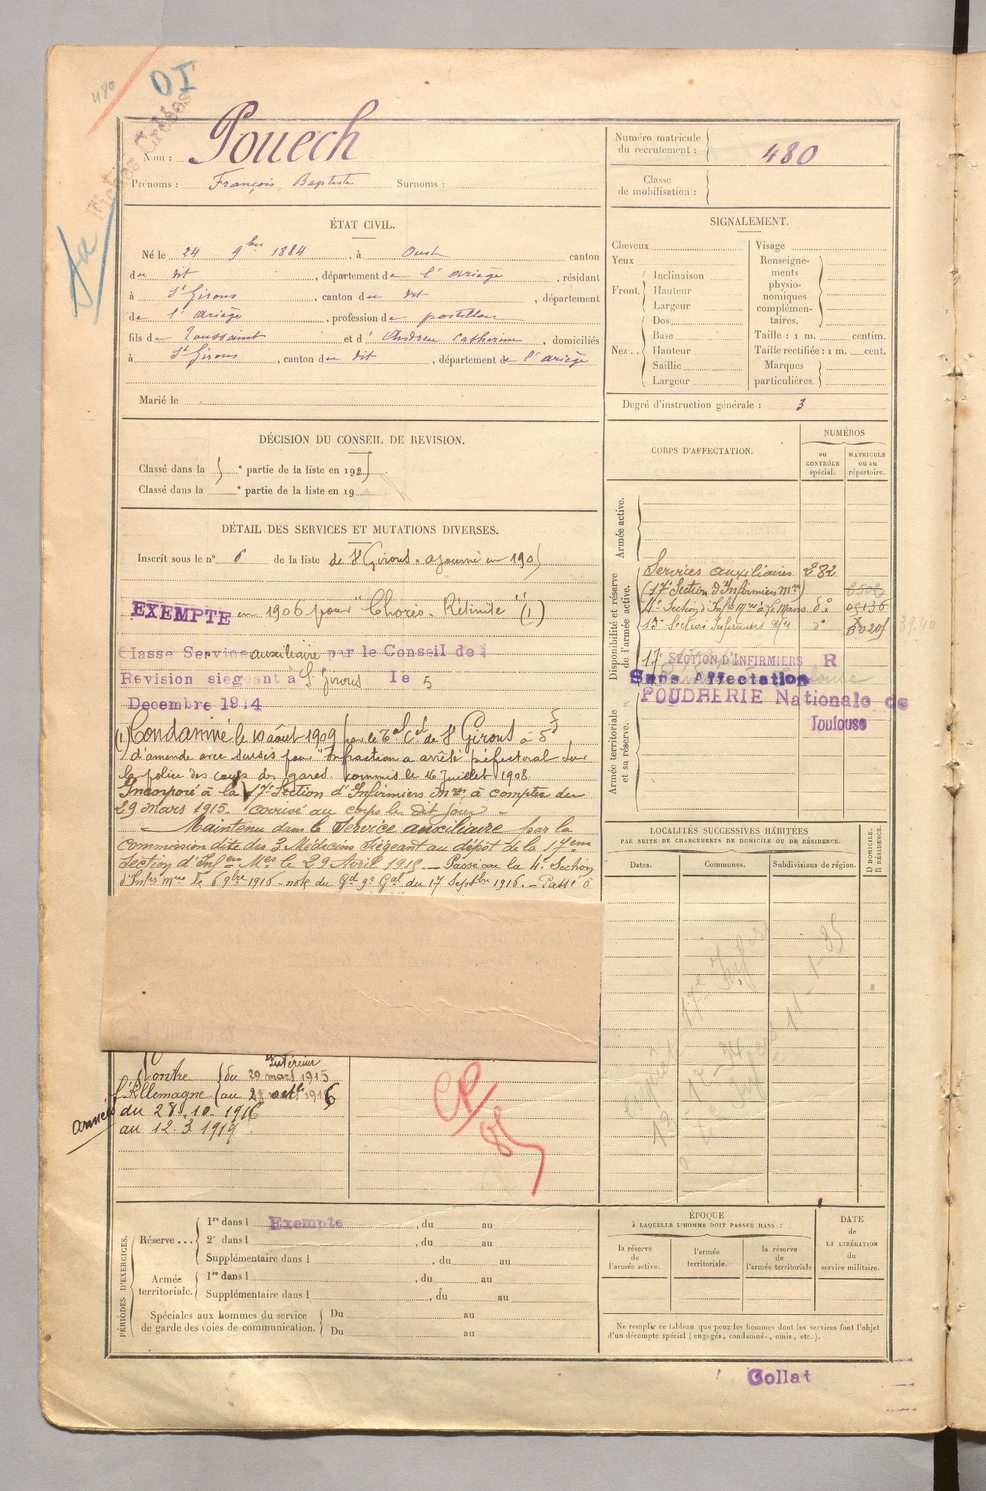 480
OI
Fiches Créées
Nom : Pouech
Prénoms : François, Baptiste Surnoms :
Numéro matricule
du recrutement : 480
Classe
de mobilisation :
ÉTAT CIVIL.
Né le 24 9bre 1884, à Oust canton
du dit, département de l'Ariège, résidant
à St Girons, canton du dit, département
de l'Ariège, profession de postillon
fils de Toussaint et d'Andrieu Catherine, domiciliés
à St Girons, canton du dit, département de l'Ariège
Marié le
SIGNALEMENT.
Cheveux
Yeux
Front.
Inclinaison
Hauteur
Largeur
Nez..
Dos
Base
Hauteur
Saillie
Largeur
Visage
Renseigne-
ments
physio-
nomiques
complémen-
taires.
Taille : 1 m. centim.
Taille rectifiée : 1 m. cent.
Marques
particulières.
Degré d'instruction générale : 3
DÉCISION DU CONSEIL DE REVISION.
Classé dans la e partie de la liste en 190
Classé dans la e partie de la liste en 19
DÉTAIL DES SERVICES ET MUTATIONS DIVERSES.
Inscrit sous le n° 6 de la liste de St Girons. ajourné en 1905
EXEMPTE en 1906 pour "Choréo-Rétinite" (1)
Classe Service auxiliaire par le Conseil de
Revision siegeant à St Girons le 5
Decembre 1914
(1) Condamné le 10 août 1909 par le Tal Cel de St Girons à 5f
d'amende avec sursis pour "Infraction a arrêté préfectoral sur
la police des cours des gares commis le 16 Juillet 1908.
Incorporé à la 17e Section d'Infirmiers Mres à compter du
29 mars 1915. arrivé au corps le dit jour
Maintenu dans le Service auxiliaire par la
commission dite des 3 Médecins siégeant au dépôt de la 17eme
Section d'Infers Mres le 29 Avril 1915. Passé au la 4e Section
d'Infirs mres le 6 9bre 1916 - note du Gd Qr Gal du 17 Septbre 1916. Passé à
CORPS D'AFFECTATION.
NUMÉROS
au
CONTRÔLE
spécial.
MATRICULE
ou au
répertoire.
Armée active.
Disponibilité et réserve
de l'armée active.
Armée territoriale
et sa réserve.
Services auxiliaires 382
(17e Section d'Infirmiers mres)
4e Section d'Infrs Mres à Le Mans do
Section Infirmiers do
17e SECTION D'INFIRMIERS R
Sans Affectation
POUDRERIE Nationale de
Toulouse
LOCALITÉS SUCCESSIVES HABITÉES
PAR SUITE DE CHANGEMENTS DE DOMICILE OU DE RÉSIDENCE.
Dates.
Communes.
Subdivisions de région.
D DOMICILE.
R RÉSIDENCE.
Contre
l'Allemagne
Intérieur
du 29 mars 1915
au 27 octe 1916
Armées
du 28.10.1916
au 12.3.1919
CR
PÉRIODES D'EXERCICES.
Réserve...
1re dans l Exempte, du au
2e dans l , du au
Supplémentaire dans l , du au
Armée
territoriale.
1re dans l , du au
Supplémentaire dans l , du au
Spéciales aux hommes du service
de garde des voies de communication.
Du au
Du au
ÉPOQUE
À LAQUELLE L'HOMME DOIT PASSER DANS :
la réserve
de
l'armée active.
l'armée
territoriale.
la réserve
de
l'armée territoriale
DATE
de
LA LIBÉRATION
du
service militaire.
Ne remplir ce tableau que pour les hommes dont les services font l'objet
d'un décompte spécial (engagés, condamnés, omis, etc.).
Collat